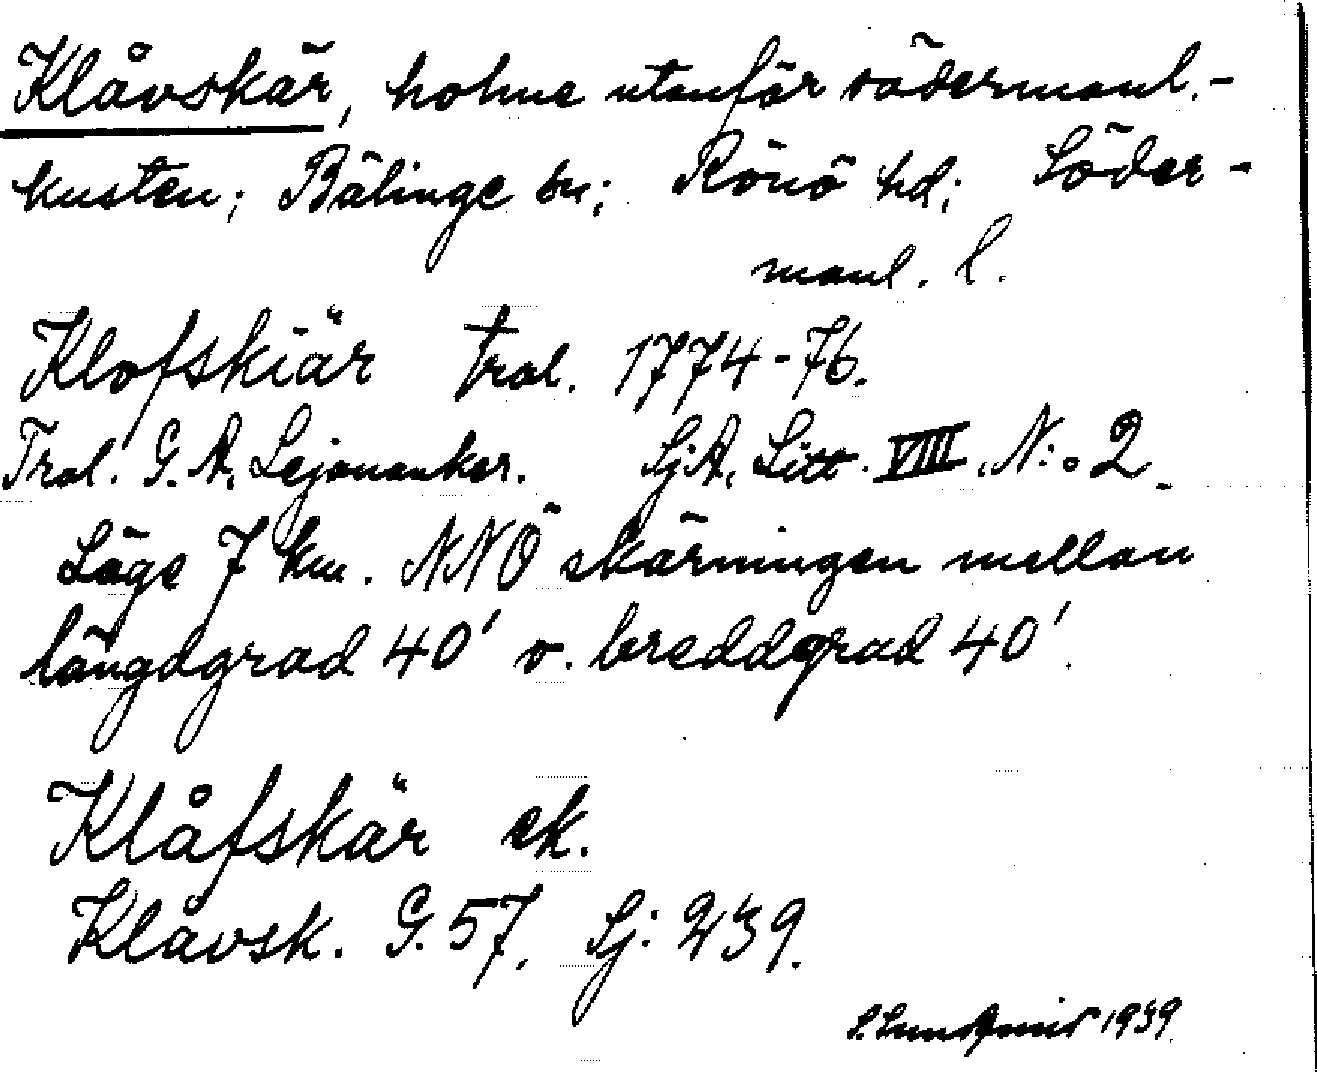 Klåvskär, holme utanför södermanl.-
kusten; Bälinge sn; Rönö hd; Söder-
manl. l.
Klofskiär Trol. 1774-76.
Trol. G. A. Lejonanker. Sj.A. Litt. VIII. N:o 2.
Läge 7 km. NNÖ skärningen mellan
längdgrad 40' o. breddgrad 40'.
Klåfskär ek.
Klåvsk. G. 57. Sj: 239.
1939